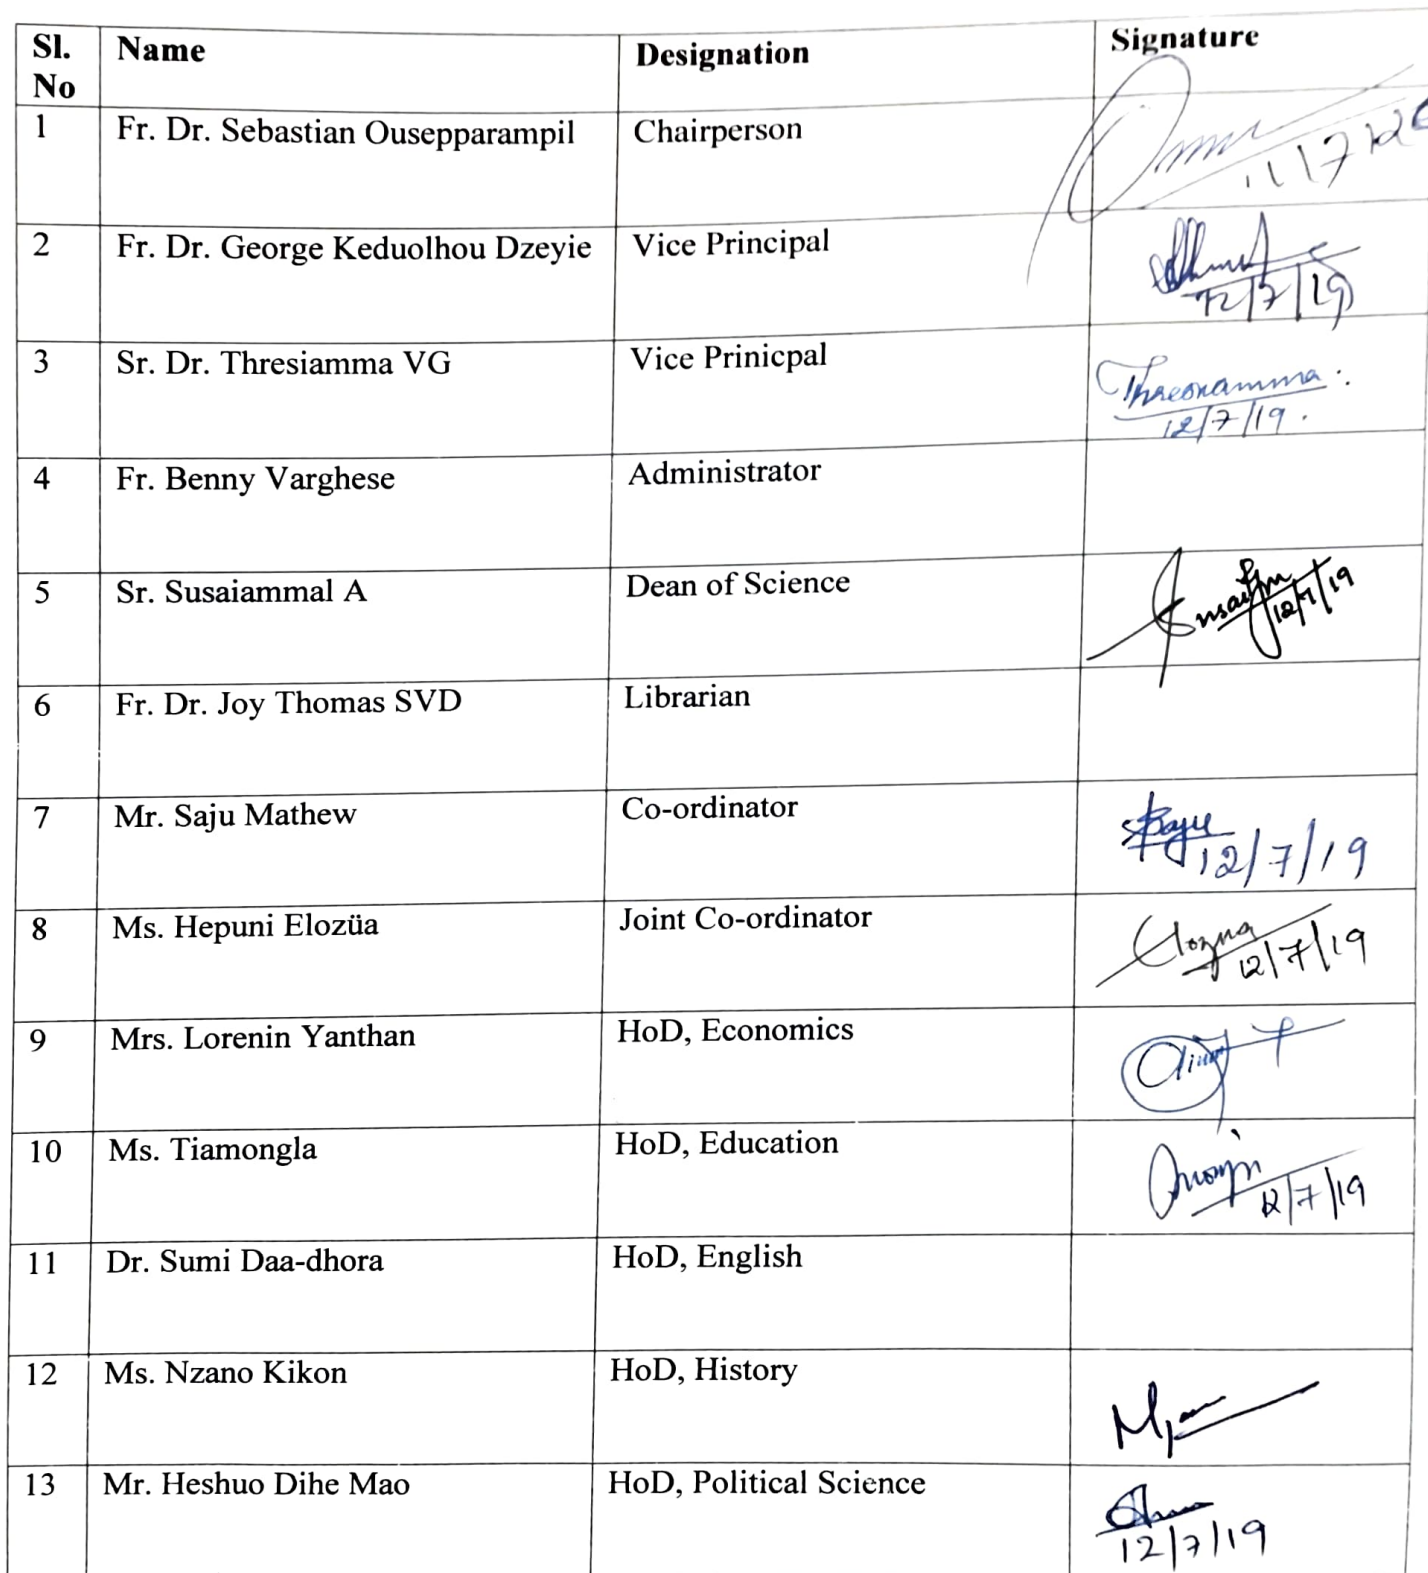 Sl. No Name Designation Signature
1 Fr. Dr. Sebastian Ousepparampil Chairperson
2 Fr. Dr. George Keduolhou Dzeyie Vice Principal 12/7/19
3 Sr. Dr. Thresiamma VG Vice Prinicpal Thresiamma 12/7/19.
4 Fr. Benny Varghese Administrator
5 Sr. Susaiammal A Dean of Science 12/7/19
6 Fr. Dr. Joy Thomas SVD Librarian
7 Mr. Saju Mathew Co-ordinator Saju 12/7/19
8 Ms. Hepuni Elozüa Joint Co-ordinator Elozua 12/7/19
9 Mrs. Lorenin Yanthan HoD, Economics
10 Ms. Tiamongla HoD, Education 12/7/19
11 Dr. Sumi Daa-dhora HoD, English
12 Ms. Nzano Kikon HoD, History
13 Mr. Heshuo Dihe Mao HoD, Political Science 12/7/19